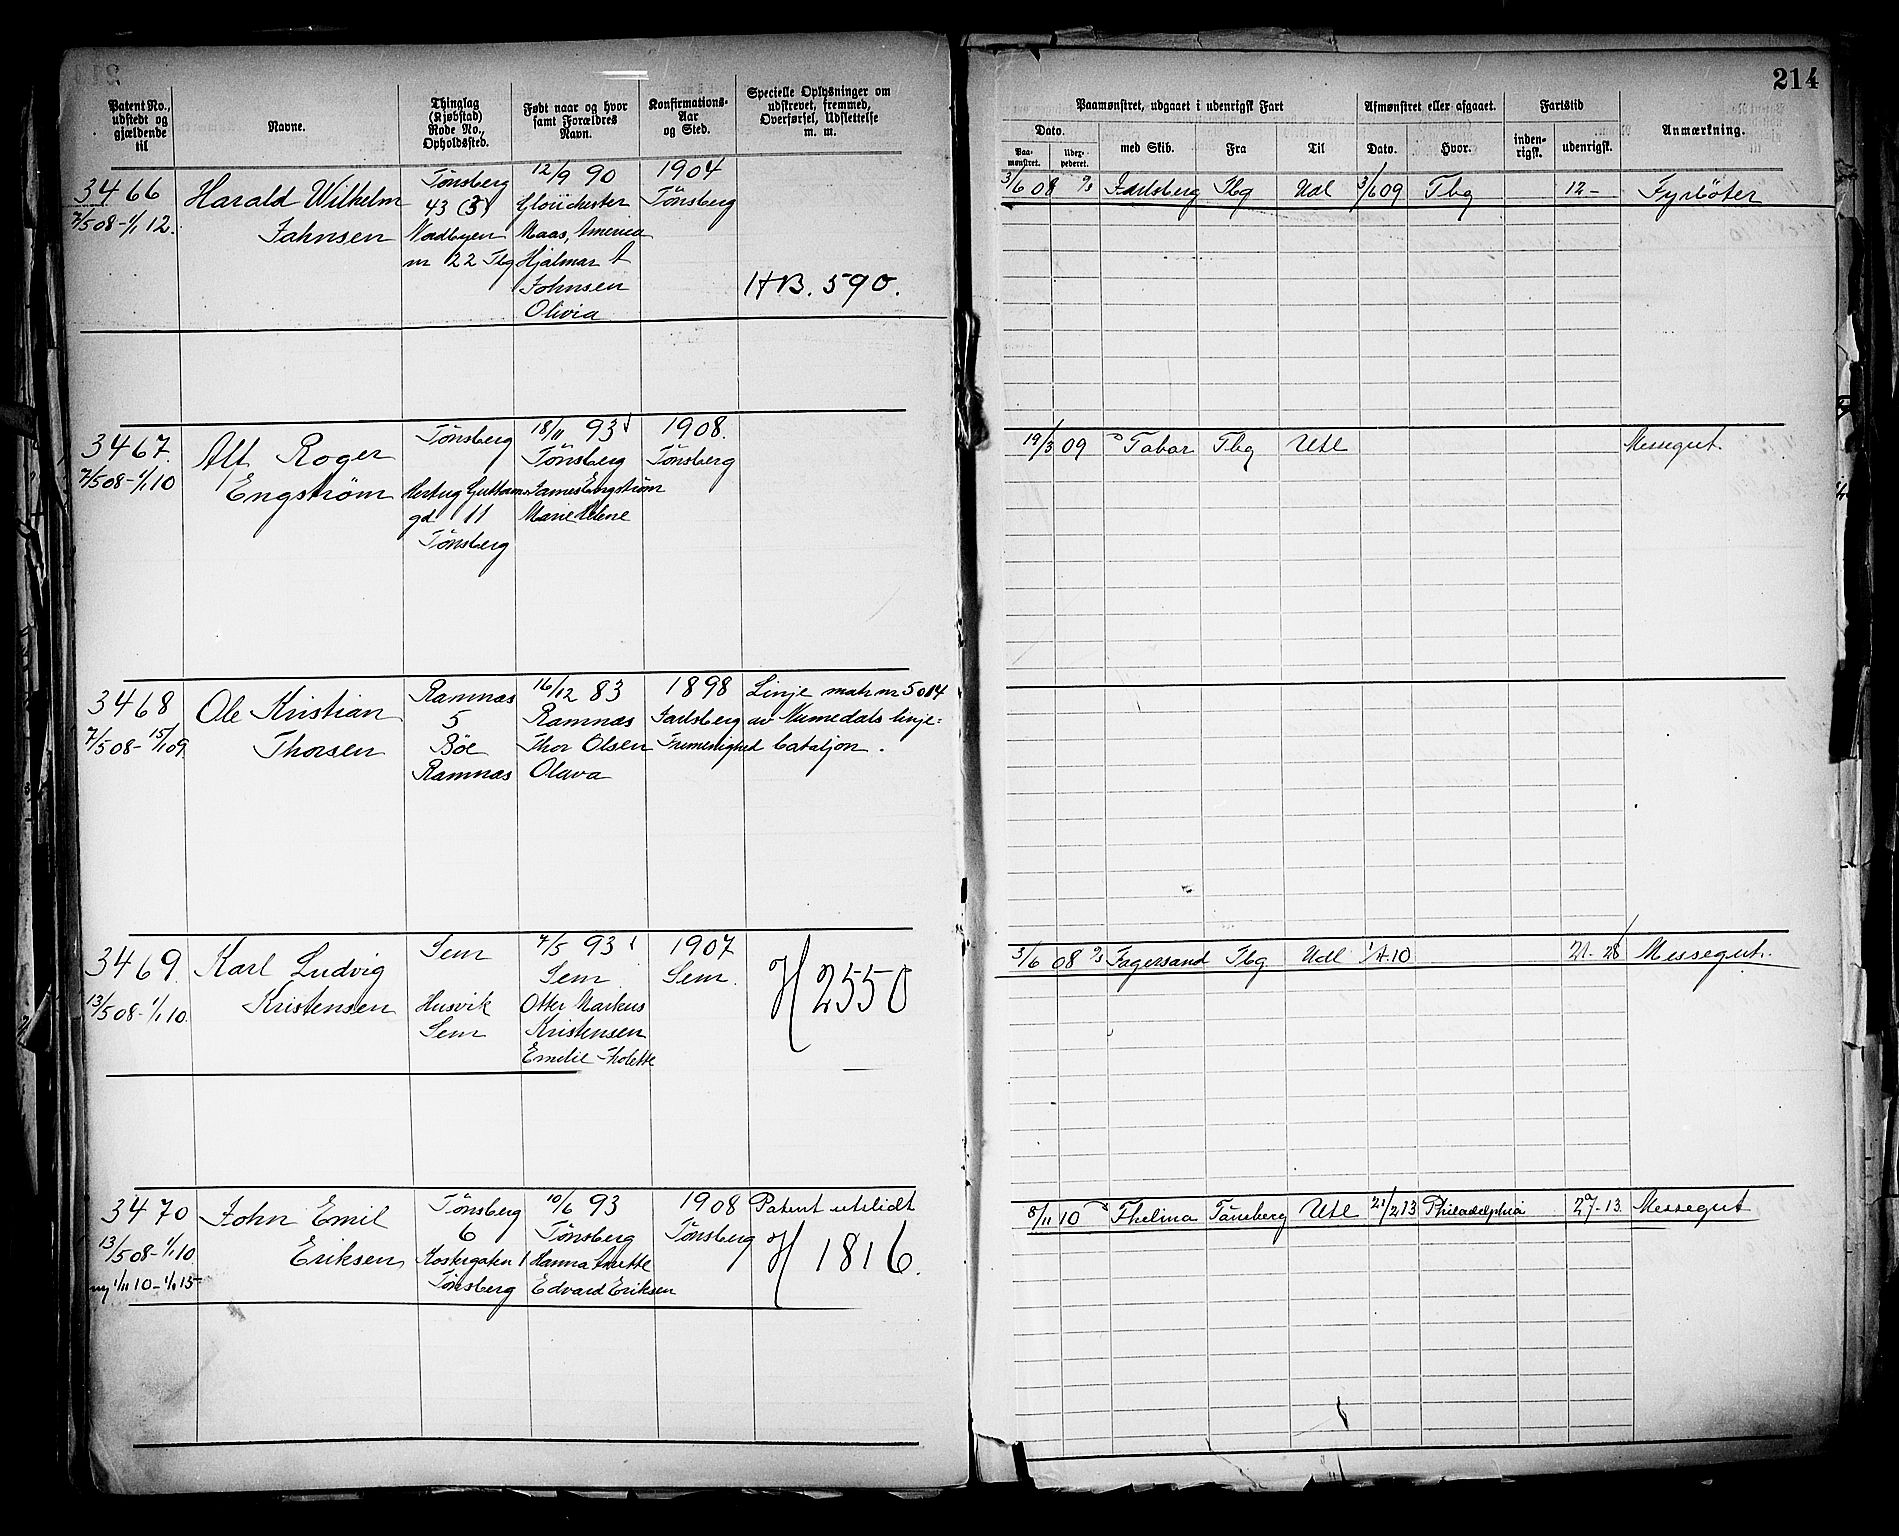 214
Patent No., udstedt og gjældende til
Navne.
Thinglag (Kjøbstad) Rode No., Opholdssted.
Født naar og hvor samt Forældres Navn.
Konfirmations-Aar og Sted.
Specielle Oplysninger om udstrevet, fremmed, Overførsel, Udslettelse m. m.
Paamønstret, udgaaet i udenrigsk Fart
Afmønstret eller afgaaet.
Fartstid
Anmærkning.
Dato.
Paa-mønstret.
Udex-pederet.
med Skib.
Fra
Til
Dato.
Hvor.
inden-rigsk.
udenrigsk.
3466
7/5 08 - 1/1 12.
Harald Wilhelm
Jahnsen
Tønsberg
43 (3)
Nordbyen
nr 22 Tbg
12/9 90
Glouchester
Maas, America
Hjalmar A
Johnsen
Olivia
1904
Tønsberg
HB. 590.
3/6 08 Jarlsberg Tbg Udl 3/6 09 Tbg 12- Fyrbøter
3467.
7/5 08 - 1/1 10
Alf Roger
Engstrøm
Tønsberg
Hertug Guttorms
gd 11
Tønsberg
18/11 93
Tønsberg
James Engstrøm
Marie Helene
1908.
Tønsberg
19/3 09 Tabor Tbg Utl Messegut.
3468
7/5 08 - 15/1 09
Ole Kristian
Thorsen
Ramnæs
5
Bøe
Ramnæs
16/12 83
Ramnæs
Thor Olsen
Olava
1898
Jarlsberg
Frimenighed
Linje matr nr 5014
av Numedals linje=
bataljon.
3469.
13/5 08 - 1/1 10.
Karl Ludvig
Kristensen
Sem
Husvik
Sem
7/5 93
Sem
Otter Markus
Kristensen
Emelie
1907
Sem.
H 2550
3/6 08 Fagersand Tbg. Udl 10 21-28 Messegut.
3470
13/5 08 - 1/1 10
ny 1/11 10 - 1/1 15
John Emil
Eriksen
Tønsberg
6
Tønsberg
10/6 93
Tønsberg
Hanna
Edvard Eriksen
1908
Tønsberg
Patent utslidt
H 1816.
8/11 10 Thelma Tønsberg Utl 21/2 13 Philadelphia 27-13 Messegut